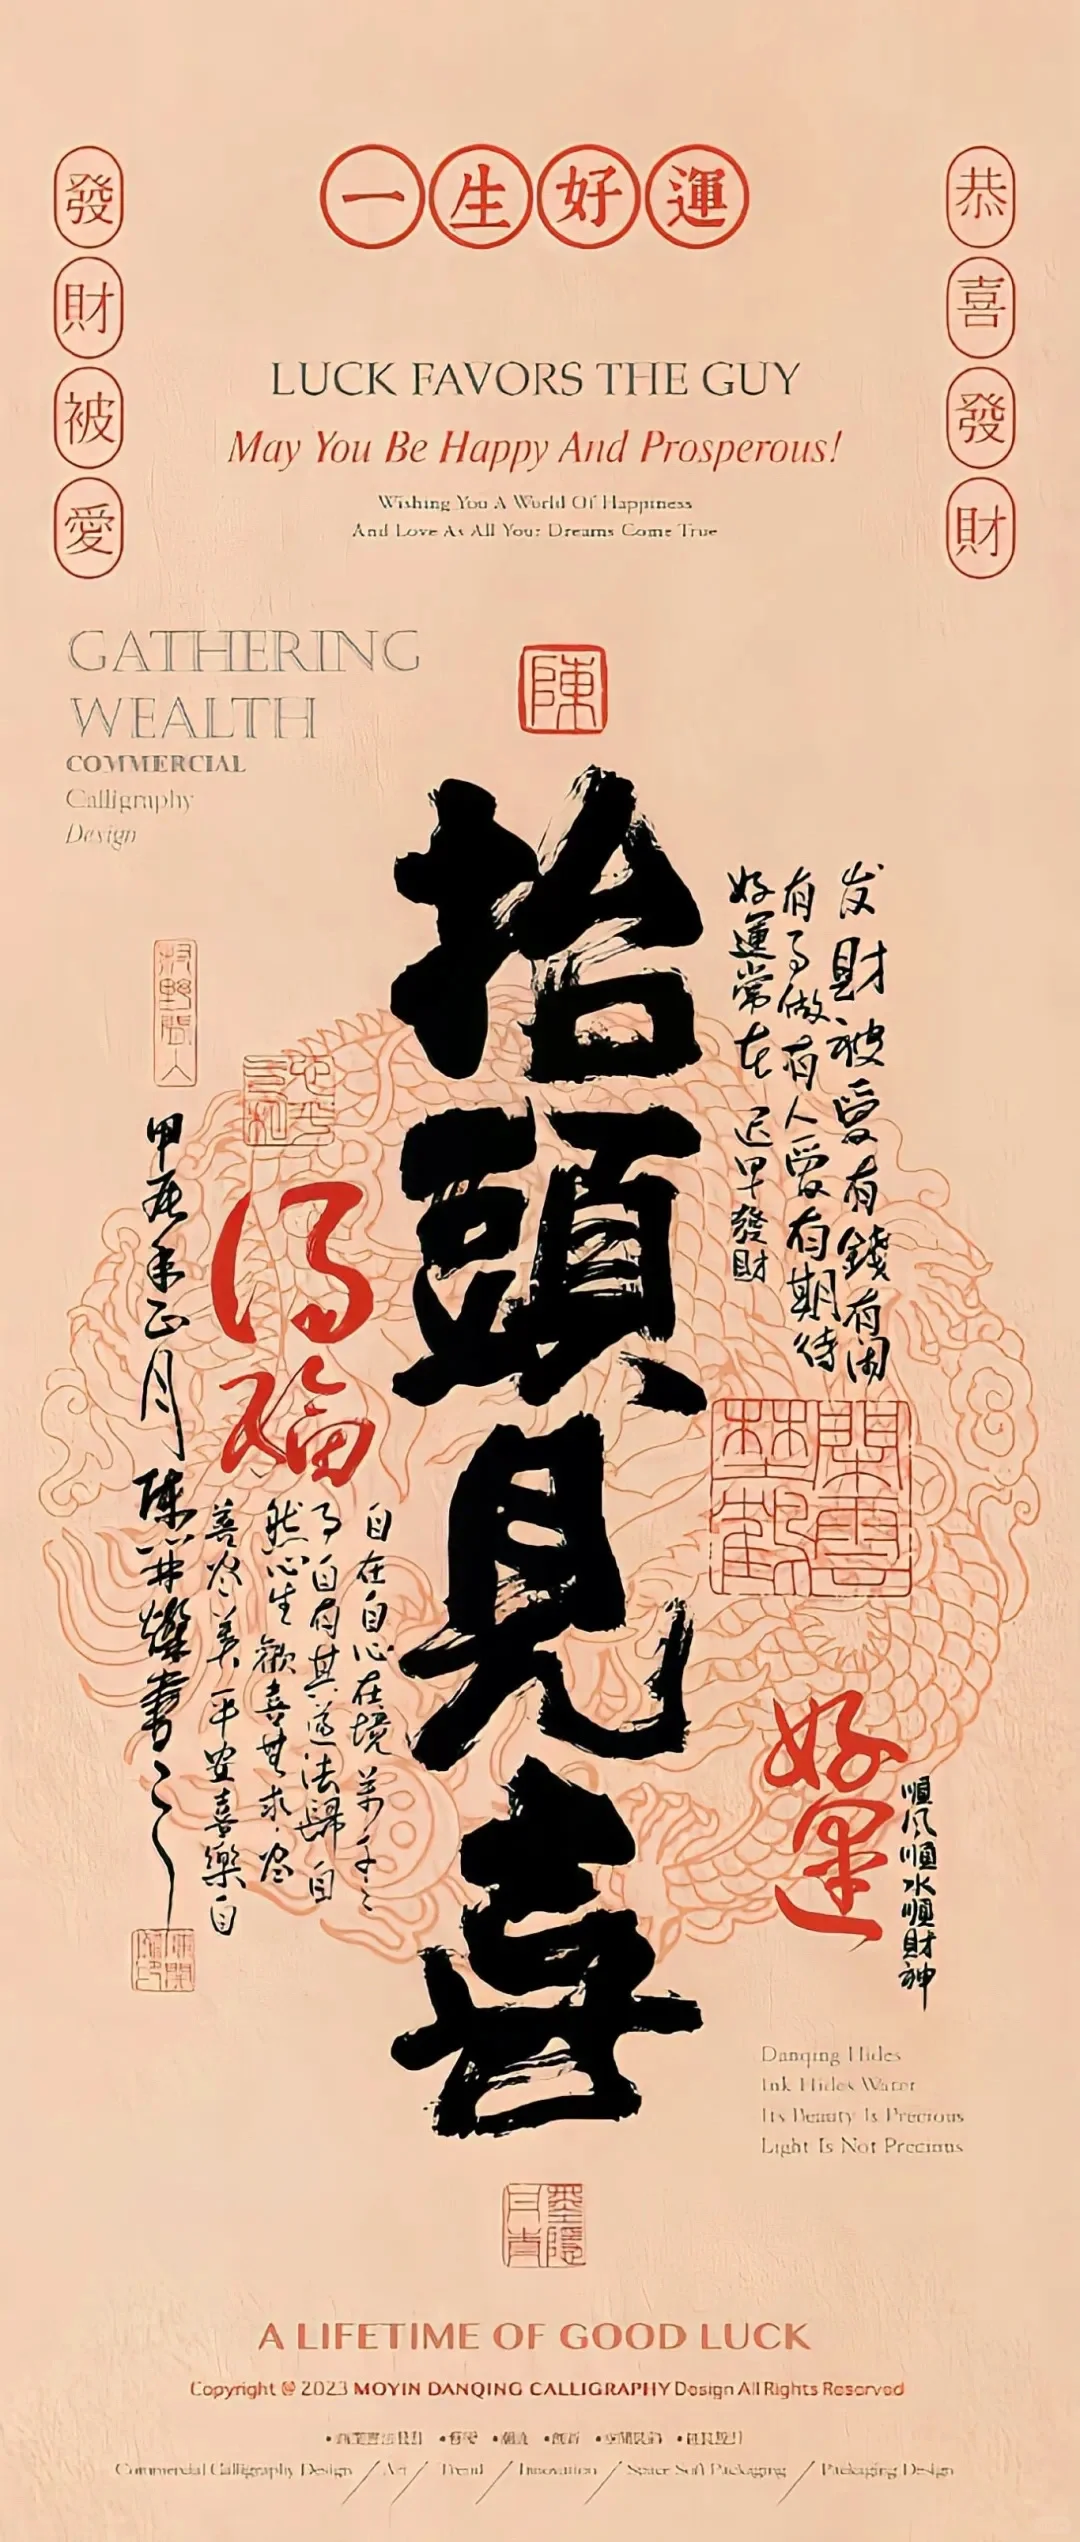 一生好運
發財被愛
恭喜發財
LUCK FAVORS THE GUY
May You Be Happy And Prosperous!
Wishing You A World Of Happiness
And Love As All Your Dreams Come True
GATHERING
WEALTH
COMMERCIAL
Calligraphy
Design
陳
抬頭見喜
发財被愛有錢有闲
有事做有人愛有期待
好運常在 迟早發財
得福
甲辰年正月陳
書
自在自心在境
事自有其道法歸自
然心生歡喜無求尽
善尽美平安喜樂自
好運
順風順水順財神
Danqing Hides
Ink Hides Water
Its Beauty Is Precious
Light Is Not Precious
A LIFETIME OF GOOD LUCK
Copyright @ 2023 MOYIN DANQING CALLIGRAPHY Design All Rights Reserved
Commercial Calligraphy Design / Art / Trend / Innovation / Space Soft Packaging / Packaging Design